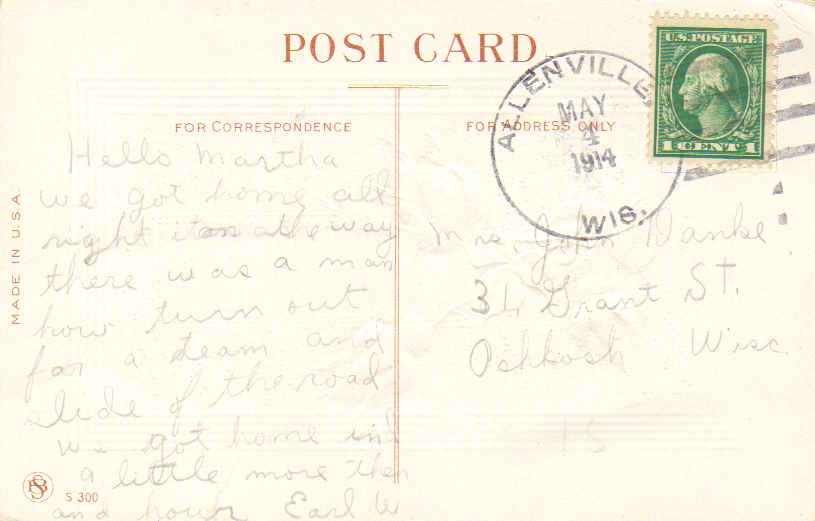 POST CARD
FOR CORRESPONDENCE
FOR ADDRESS ONLY
U.S. POSTAGE
1 CENT 1
ALLENVILLE
MAY
4
1914
WIS.
MADE IN U.S.A.
Hello Martha
we got home all
right on the way
there was a man
how turn out
for a team and
slide of the road
we got home in
a little more then
and hour Earl W
Mrs. John Danke
Grant St.
Oshkosh Wisc
S 300